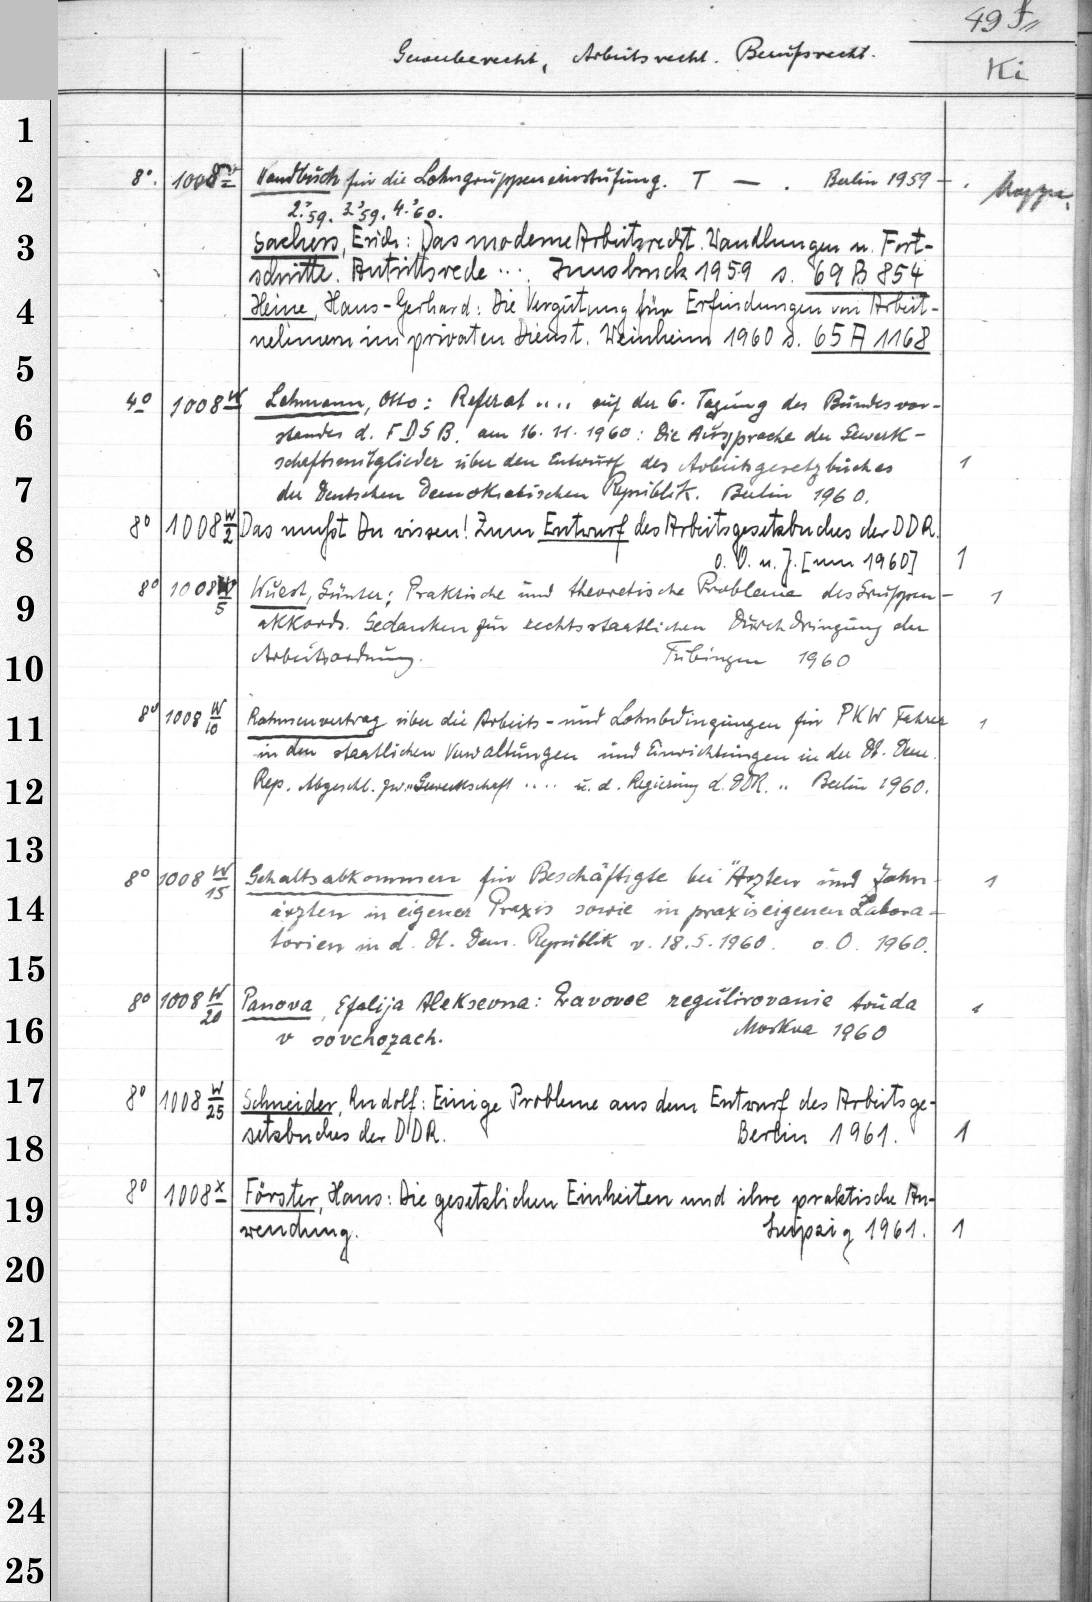 49 f,,
Ki
Gewerberecht, Arbeitsrecht. Berufsrecht.
1
2
3
4
5
6
7
8
9
10
11
12
13
14
15
16
17
18
19
20
21
22
23
24
25
8°. 1008 Handbuch für die Lohngruppeneinstufung. T — . Berlin 1959 — . Mappe.
2.'59. 3.'59. 4.'60.
Sachers, Erich: Das moderne Arbeitsrecht. Wandlungen u. Fort-
schritte. Antrittsrede ... Innsbruck 1959 s. 69 B 854
Heine, Hans-Gerhard: Die Vergütung für Erfindungen von Arbeit-
nehmern im privaten Dienst. Weinheim 1960 s. 65 A 1168
4° 1008 W Lehmann, Otto: Referat .... auf der 6. Tagung des Bundesvor-
standes d. FDGB. am 16.11.1960: Die Aussprache der Gewerk-
schaftsmitglieder über den Entwurf des Arbeitsgesetzbuches 1
der Deutschen Demokratischen Republik. Berlin 1960.
8° 1008 W/2 Das mußt Du wissen! Zum Entwurf des Arbeitsgesetzbuches der DDR.
o. O. u. J. [um 1960] 1
8° 1008 W/5 Wuest, Günter: Praktische und theoretische Probleme des Gruppen- 1
akkords. Gedanken zur rechtsstaatlichen Durchdringung der
Arbeitsordnung. Tübingen 1960
8° 1008 W/10 Rahmenvertrag über die Arbeits- und Lohnbedingungen für PKW Fahrer 1
in den staatlichen Verwaltungen und Einrichtungen in der Dt. Dem.
Rep. Abgeschl. zw. Gewerkschaft .... u. d. Regierung d. DDR. .. Berlin 1960.
8° 1008 W/15 Gehaltsabkommen für Beschäftigte bei Ärzten und Zahn- 1
ärzten in eigener Praxis sowie in praxiseigenen Labora-
torien in d. Dt. Dem. Republik v. 18.5.1960. o. O. 1960.
8° 1008 W/20 Panova, Efalija Alekseevna: Pravovoe regulirovanie truda 1
v sovchozach. Moskva 1960
8° 1008 W/25 Schneider, Rudolf: Einige Probleme aus dem Entwurf des Arbeitsge-
setzbuches der DDR. Berlin 1961. 1
8° 1008 x Förster, Hans: Die gesetzlichen Einheiten und ihre praktische An-
wendung. Leipzig 1961. 1